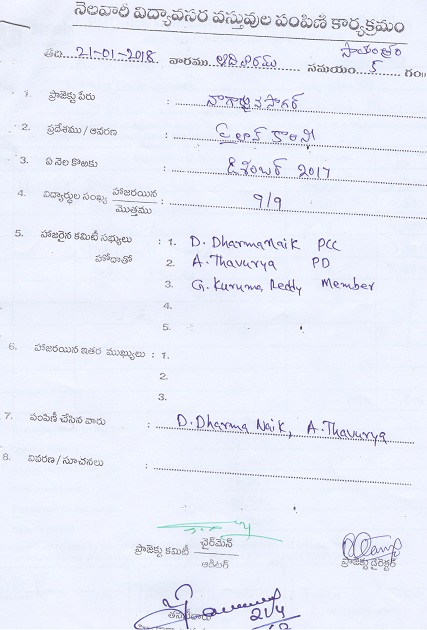 నెలవారీ విద్యావసర వస్తువుల పంపిణి కార్యక్రమం
తేది. 21-01-2018. వారము ఆదివారము సమయం 5 గం॥ సాయంత్రం
1. ప్రాజెక్టు పేరు : నాగార్జున సాగర్
2. ప్రదేశము / ఆవరణ : పైలాన్ కాలనీ
3. ఏ నెల కొఱకు : డిశెంబర్ 2017
4. విద్యార్థుల సంఖ్య హాజరయిన / మొత్తము : 9/9
5. హాజరైన కమిటీ సభ్యులు : 1. D. DharmaNaik PCC
హోదాతో 2. A. Thavurya PD
3. G. Kuruma Reddy Member
4.
5.
6. హాజరయిన ఇతర ముఖ్యులు : 1.
2.
3.
7. పంపిణీ చేసిన వారు : D. Dharma Naik, A. Thavurya
8. వివరణ / సూచనలు :
ప్రాజెక్టు కమిటీ ఛైర్‌మేన్ / ఆడిటర్
ప్రాజెక్టు డైరెక్టర్
21/4